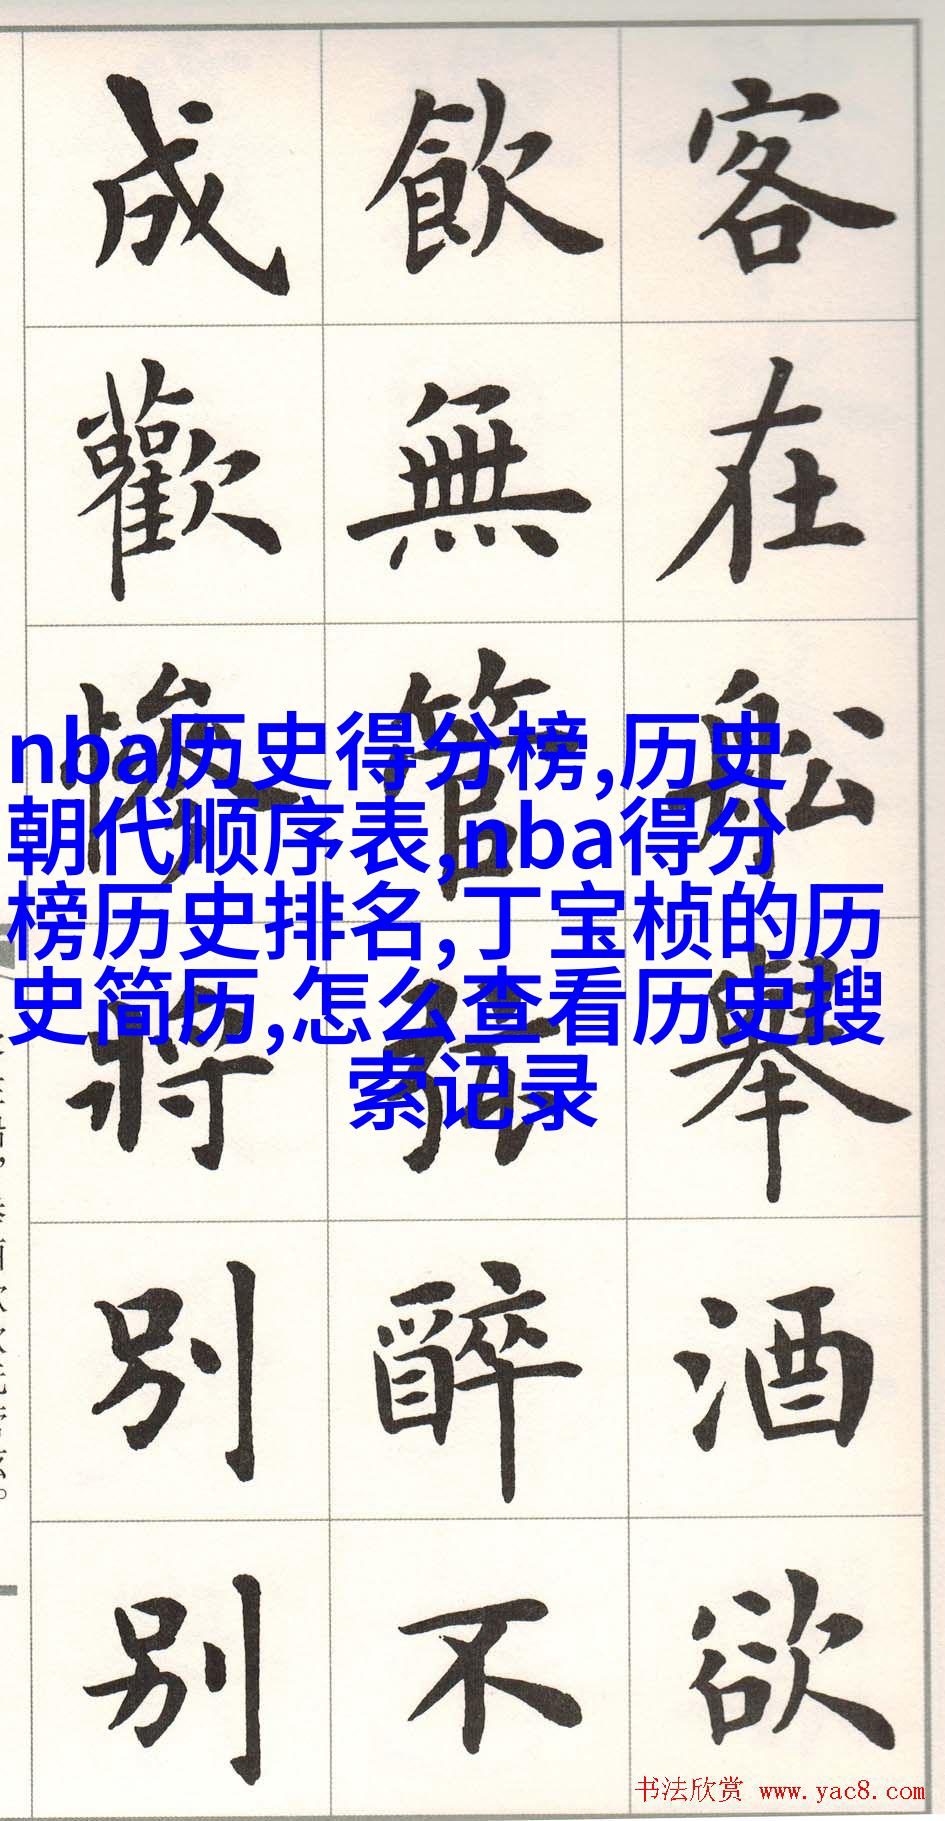 客在船舉酒欲
飲無管絃醉不
成歡慘將別別
nba历史得分榜,历史
朝代顺序表,nba得分
榜历史排名,丁宝桢的历
史简历,怎么查看历史搜
索记录
书法欣赏 www.yac8.com